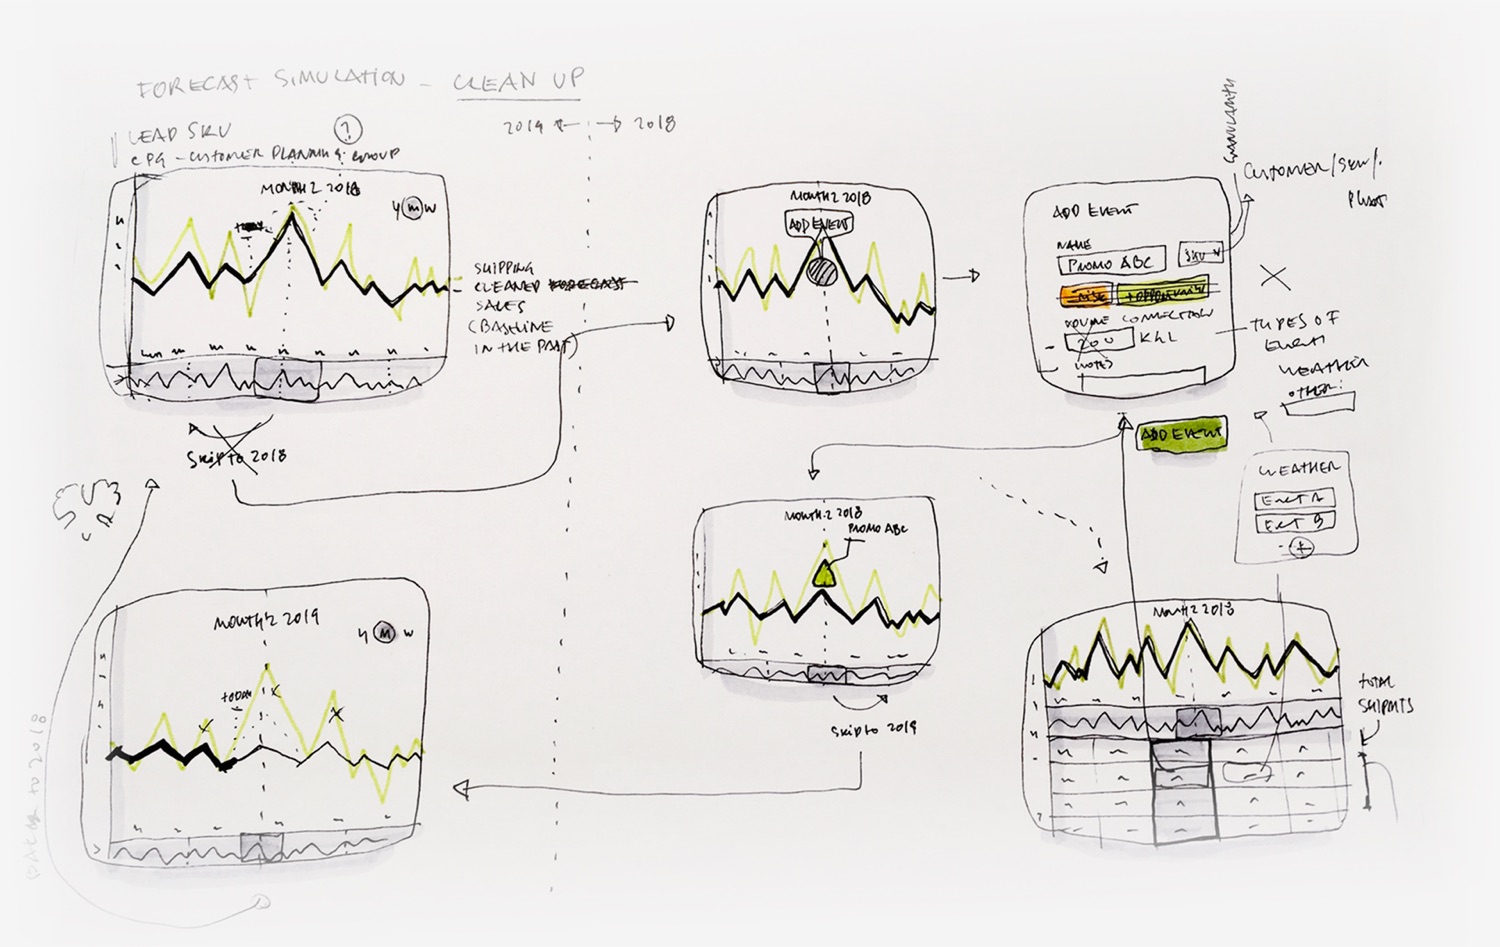 FORECAST SIMULATION - CLEAN UP
LEAD SKU
CPG - CUSTOMER PLANNING GROUP
?
2019
2018
MONTH 2 2018
Y M W
TODAY
SHIPPING
CLEANED FORECAST
SALES
(BASELINE
IN THE PAST)
Skip to 2018
MONTH 2 2018
ADD EVENT
ADD EVENT
NAME
PROMO ABC
SKU
RISE
+ OPPORTUNITY
VOLUME CORRECTION
200
NOTES
GRANULARITY
CUSTOMER/SKU/
PLANT
TYPES OF
EVENT
WEATHER
OTHER:
ADD EVENT
WEATHER
EVENT A
EVENT B
+
MONTH 2 2018
PROMO ABC
Skip to 2019
MONTH 2 2019
Y M W
TODAY
MONTH 2 2018
TOTAL
SHIPMTS
BACK TO 2018